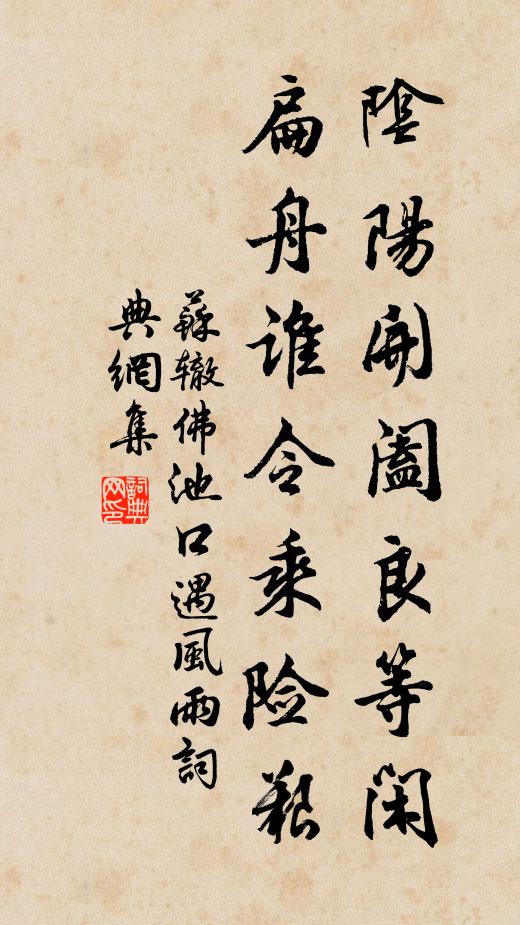 陰陽開闔良等閑
扁舟誰令乘險艱
蘇轍佛池口遇風雨詞
典網集
詞典網印